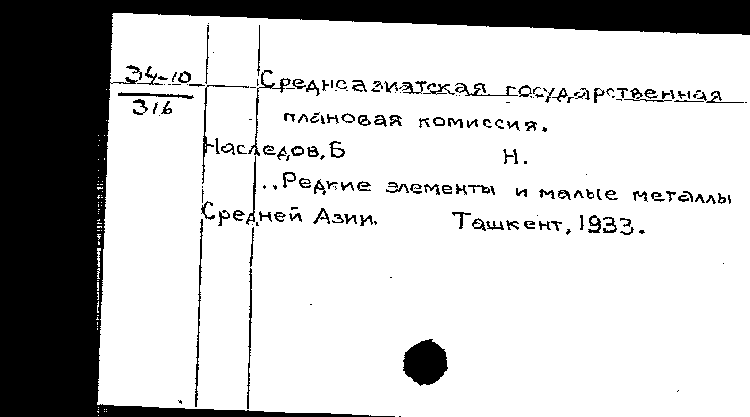 34-10
316
Среднеазиатская государственная
плановая комиссия.
Наследов, Б Н.
..Редкие элементы и малые металлы
Средней Азии. Ташкент, 1933.